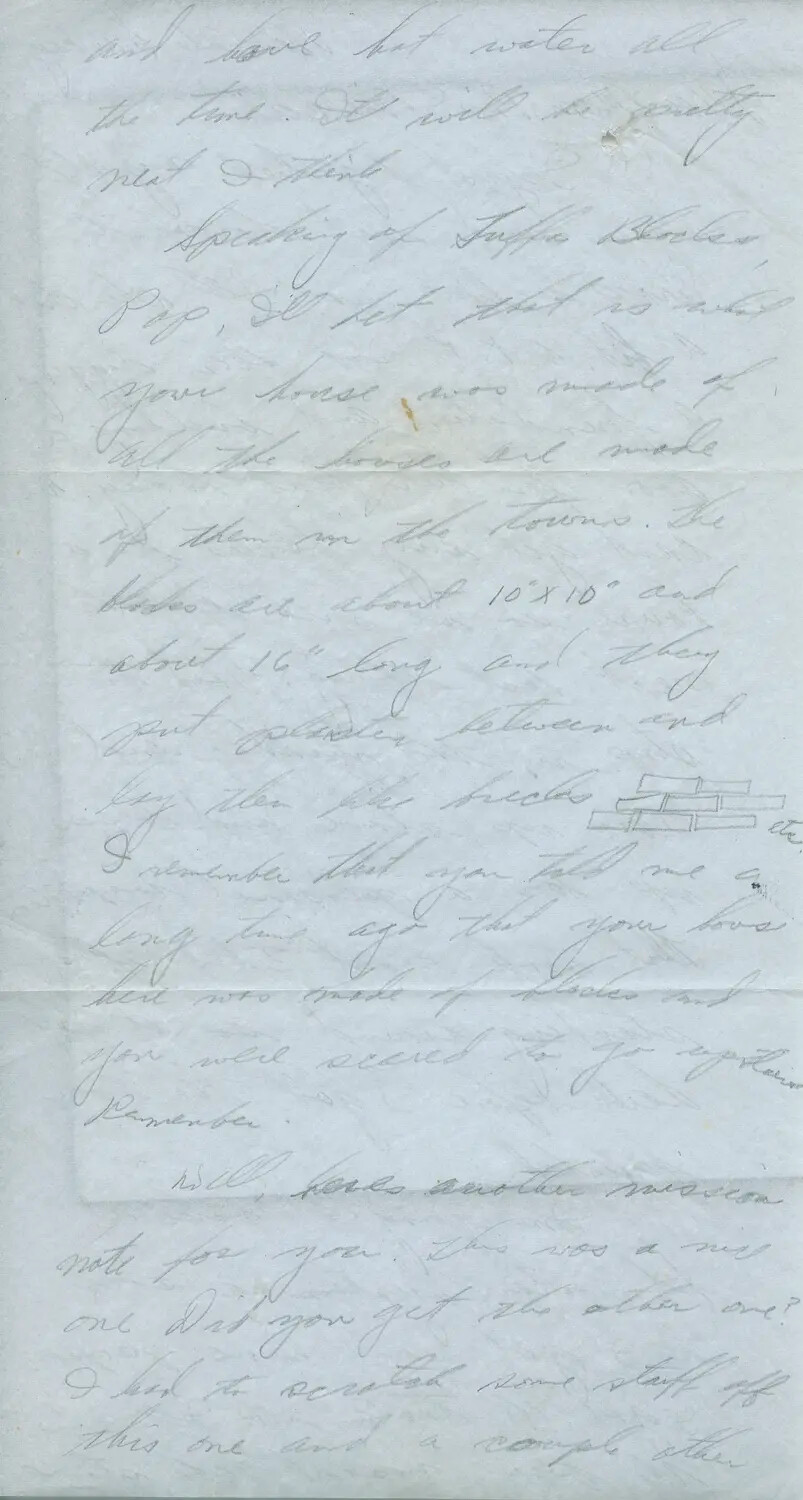 and have hot water all
the time. It'll will be pretty
neat I think
Speaking of Tuffa Blocks,
Pop, I'll bet that is what
your house was made of.
All the houses are made
of them in the towns. The
blocks are about 10" x 10" and
about 16" long and they
put plaster between and
lay them like bricks etc.
I remember that you told me a
long time ago that your hous
here was made of blocks and
you were scared to go upstairs
Remember.
Well, heres another mission
note for you. This was a nice
one Did you get the other one?
I had to scratch some stuff off
this one and a couple other